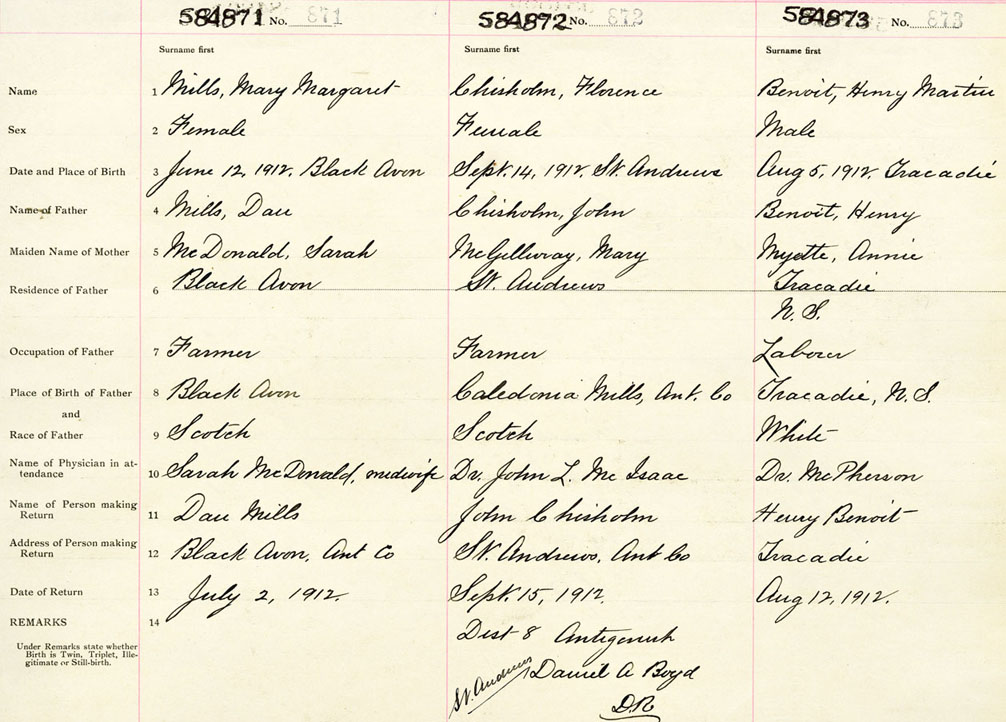 584871 No. 871 584872 No. 872 584873 No. 873
Surname first Surname first Surname first
Name 1 Mills, Mary Margaret Chisholm, Florence Benoit, Henry Martin
Sex 2 Female Female Male
Date and Place of Birth 3 June 12, 1912. Black Avon Sept. 14, 1912. St. Andrews Aug 5, 1912. Tracadie
Name of Father 4 Mills, Dan Chisholm, John Benoit, Henry
Maiden Name of Mother 5 McDonald, Sarah McGillivray, Mary Myette, Annie
Residence of Father 6 Black Avon St. Andrews Tracadie
N.S.
Occupation of Father 7 Farmer Farmer Labour
Place of Birth of Father 8 Black Avon Caledonia Mills, Ant. Co Tracadie, N.S.
and
Race of Father 9 Scotch Scotch White
Name of Physician in at-
tendance 10 Sarah McDonald, midwife Dr. John L. Mc Isaac Dr. McPherson
Name of Person making
Return 11 Dan Mills John Chisholm Henry Benoit
Address of Person making
Return 12 Black Avon, Ant Co St. Andrews, Ant Co Tracadie
Date of Return 13 July 2, 1912. Sept. 15, 1912. Aug 12, 1912.
REMARKS 14
Dist 8 Antigonish
Under Remarks state whether
Birth is Twin, Triplet, Ille-
gitimate or Still-birth.
St. Andrews Daniel A Boyd
D.R